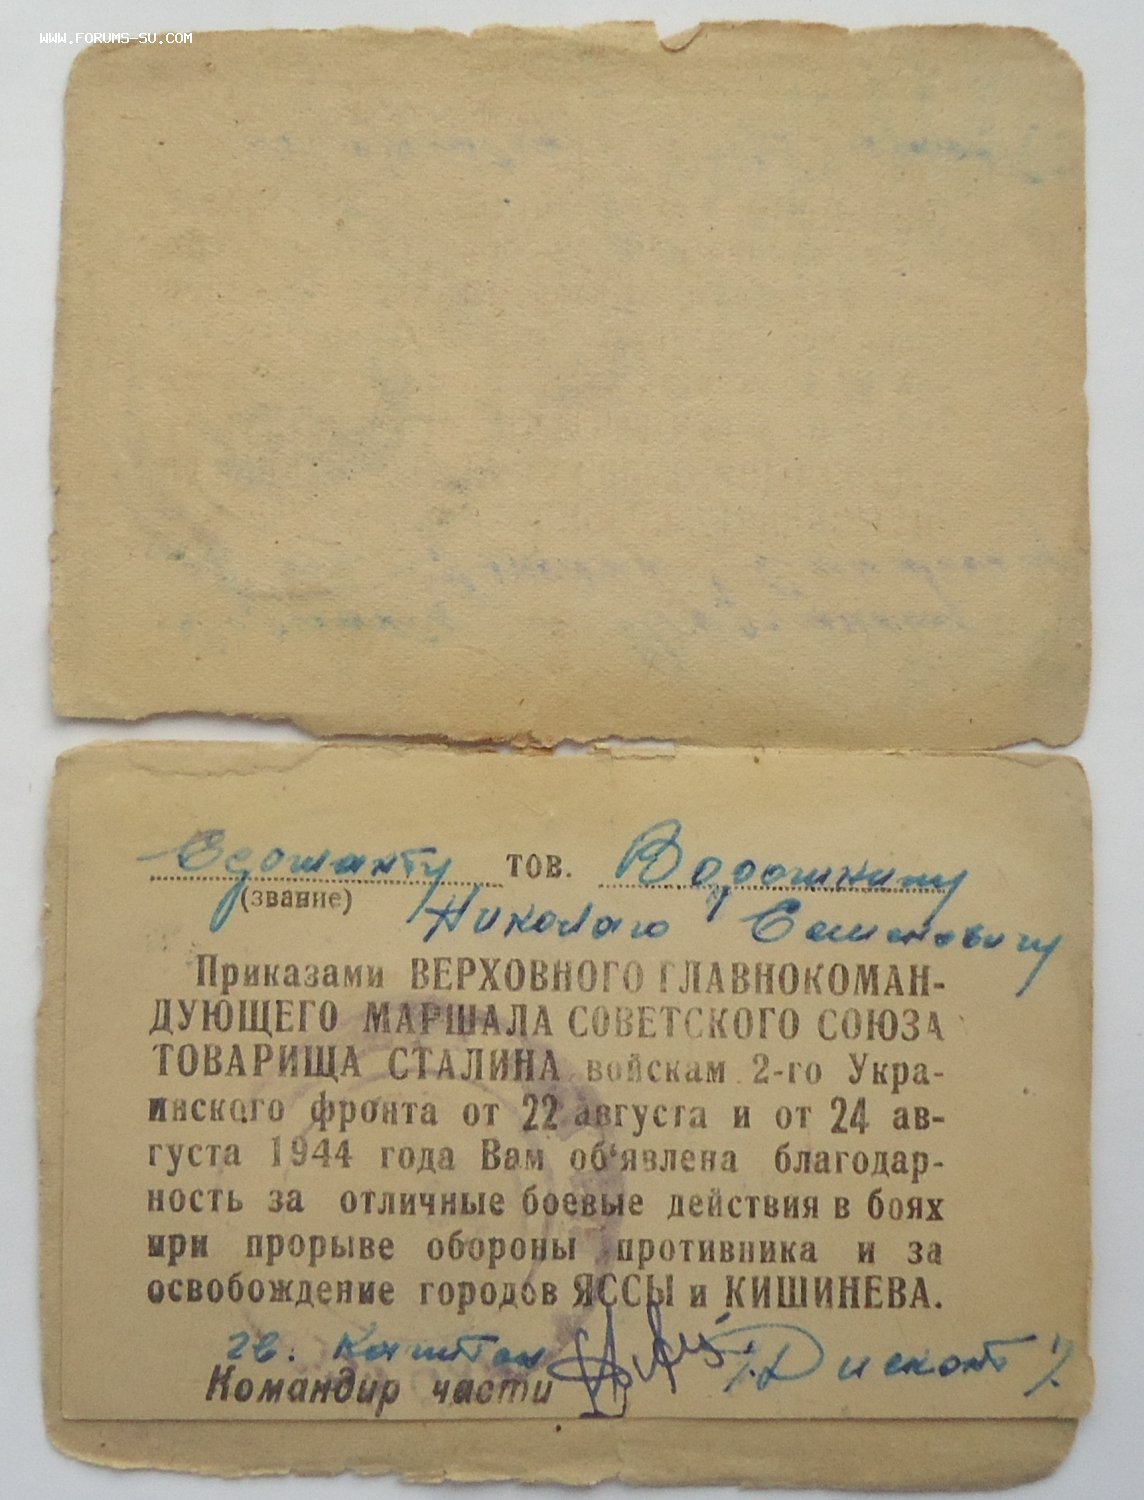 WWW.FORUMS-SU.COM
тов. Ворошнину
(звание)
Николаю Семеновичу
Приказами ВЕРХОВНОГО ГЛАВНОКОМАН-
ДУЮЩЕГО МАРШАЛА СОВЕТСКОГО СОЮЗА
ТОВАРИЩА СТАЛИНА войскам 2-го Укра-
инского фронта от 22 августа и от 24 ав-
густа 1944 года Вам об'явлена благодар-
ность за отличные боевые действия в боях
при прорыве обороны противника и за
освобождение городов ЯССЫ и КИШИНЕВА.
гв. Капитан /Дисконт/
Командир части